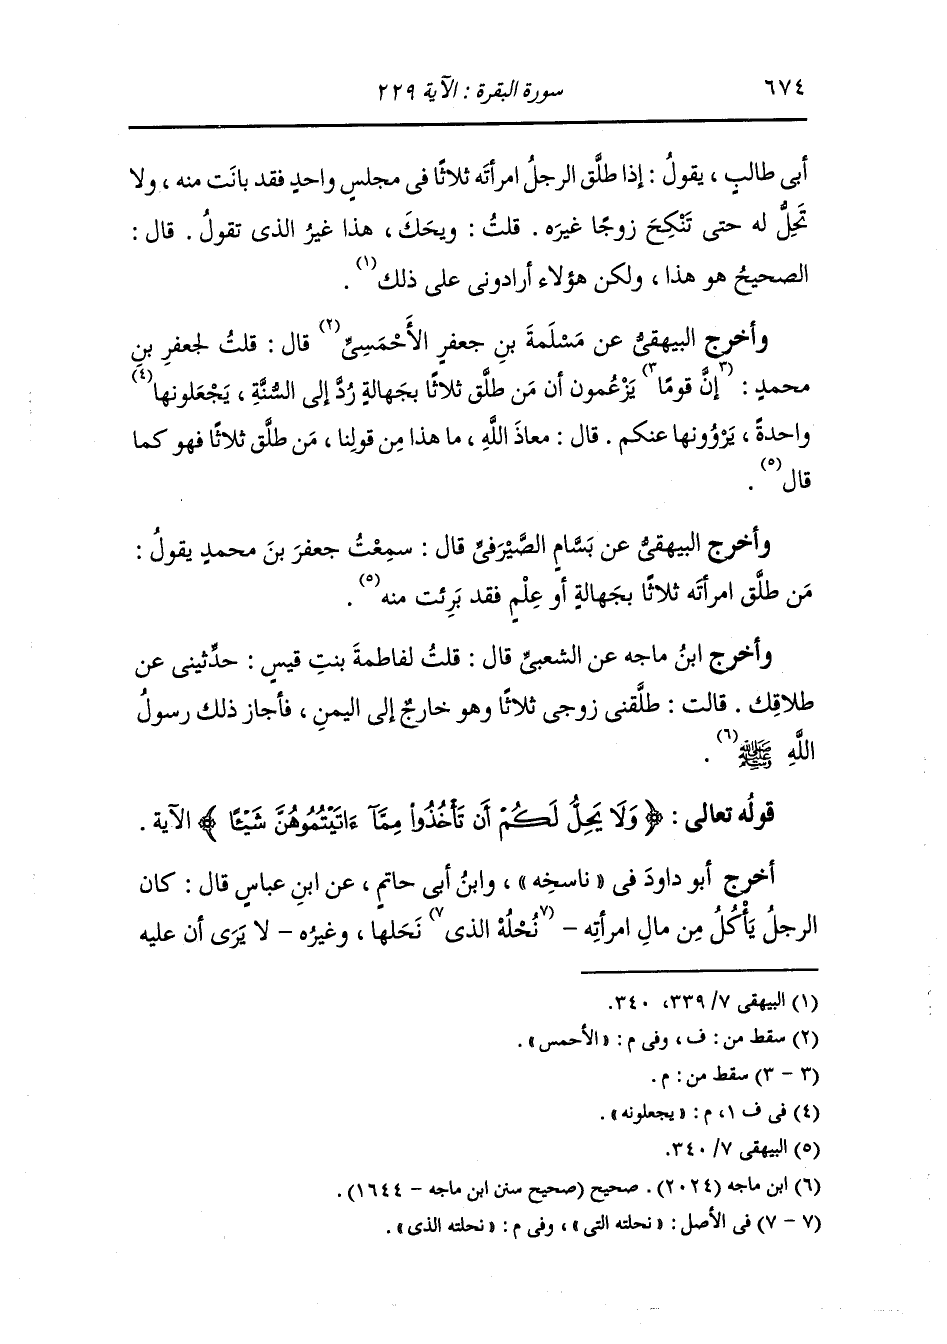 ٦٧٤ سورة البقرة : الآية ٢٢٩
أبى طالبٍ ، يقولُ : إذا طلَّق الرجلُ امرأتَه ثلاثًا فى مجلسٍ واحدٍ فقد بانَت منه ، ولا
تَحِلُّ له حتى تَنْكِحَ زوجًا غيرَه . قلتُ : ويحَكَ ، هذا غيرُ الذى تقولُ . قال :
الصحيحُ هو هذا ، ولكن هؤلاء أرادونى على ذلك(١) .
وأخرج البيهقىُّ عن مَسْلَمةَ بنِ جعفرٍ الأَحْمَسِىِّ(٢) قال : قلتُ لجعفرِ بنِ
محمدٍ : (٣)إنَّ قومًا(٣) يَزْعُمون أن مَن طلَّق ثلاثًا بجَهالةٍ رُدَّ إلى السُّنَّةِ ، يَجْعَلونها(٤)
واحدةً ، يَرْوُونها عنكم . قال : معاذَ اللَّهِ ، ما هذا مِن قولِنا ، مَن طلَّق ثلاثًا فهو كما
قال(٥) .
وأخرج البيهقىُّ عن بَسَّامٍ الصَّيْرَفىِّ قال : سمِعْتُ جعفرَ بنَ محمدٍ يقولُ :
مَن طلَّق امرأتَه ثلاثًا بجَهالةٍ أو عِلْمٍ فقد بَرِئت منه(٥) .
وأخرج ابنُ ماجه عن الشعبىِّ قال : قلتُ لفاطمةَ بنتِ قيسٍ : حدِّثينى عن
طلاقِك . قالت : طلَّقنى زوجى ثلاثًا وهو خارجٌ إلى اليمنِ ، فأجاز ذلك رسولُ
اللَّهِ ﷺ(٦) .
قولُه تعالى : ﴿ وَلَا يَحِلُّ لَكُمْ أَن تَأْخُذُواْ مِمَّآ ءَاتَيْتُمُوهُنَّ شَيْئًا ﴾ الآية .
أخرج أبو داودَ فى «ناسخِه» ، وابنُ أبى حاتمٍ ، عن ابنِ عباسٍ قال : كان
الرجلُ يَأْكُلُ مِن مالِ امرأتِه – (٧)نُحْلُهُ الذى(٧) نَحَلها ، وغيرُه – لا يَرَى أن عليه
(١) البيهقى ٧/ ٣٣٩، ٣٤٠.
(٢) سقط من : ف ، وفى م : «الأحمس» .
(٣ – ٣) سقط من : م .
(٤) فى ف ١، م : «يجعلونه» .
(٥) البيهقى ٧/ ٣٤٠.
(٦) ابن ماجه (٢٠٢٤) . صحيح (صحيح سنن ابن ماجه – ١٦٤٤) .
(٧ – ٧) فى الأصل : «نحلته التى» ، وفى م : «نحلته الذى» .